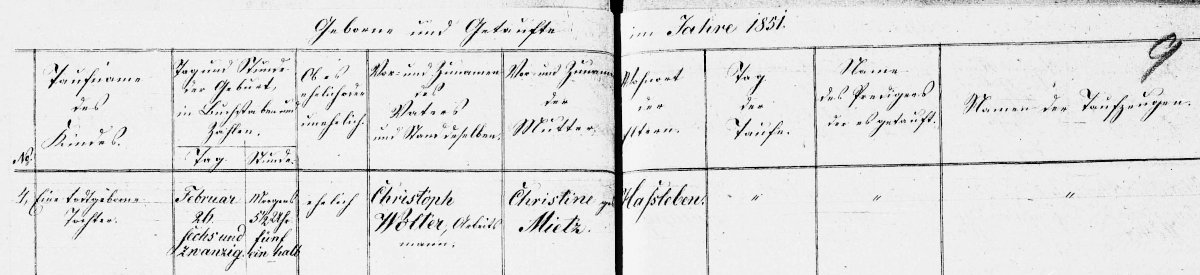 Geborne und Getaufte im Jahre 1851.
9
No.
Taufname
des
Kindes.
Tag und Stunde
der Geburt,
in Buchstaben und
Zahlen.
Tag.
Stunde.
Ob es
ehelich oder
unehelich.
Vor- und Zunamen
des
Vaters
und Stand desselben.
Vor- und Zuname
der
Mutter.
Wohnort
der
Eltern.
Tag
der
Taufe.
Name
des Predigers
der es getauft.
Namen der Taufzeugen.
Eine todtgeborne
Tochter.
Februar
26.
sechs und
zwanzig.
Morgens
5½ Uhr
fünf
ein halb
ehelich
Christoph
Wolter, Arbeits
mann.
Christine
Mietz.
Haßleben.
"
"
"